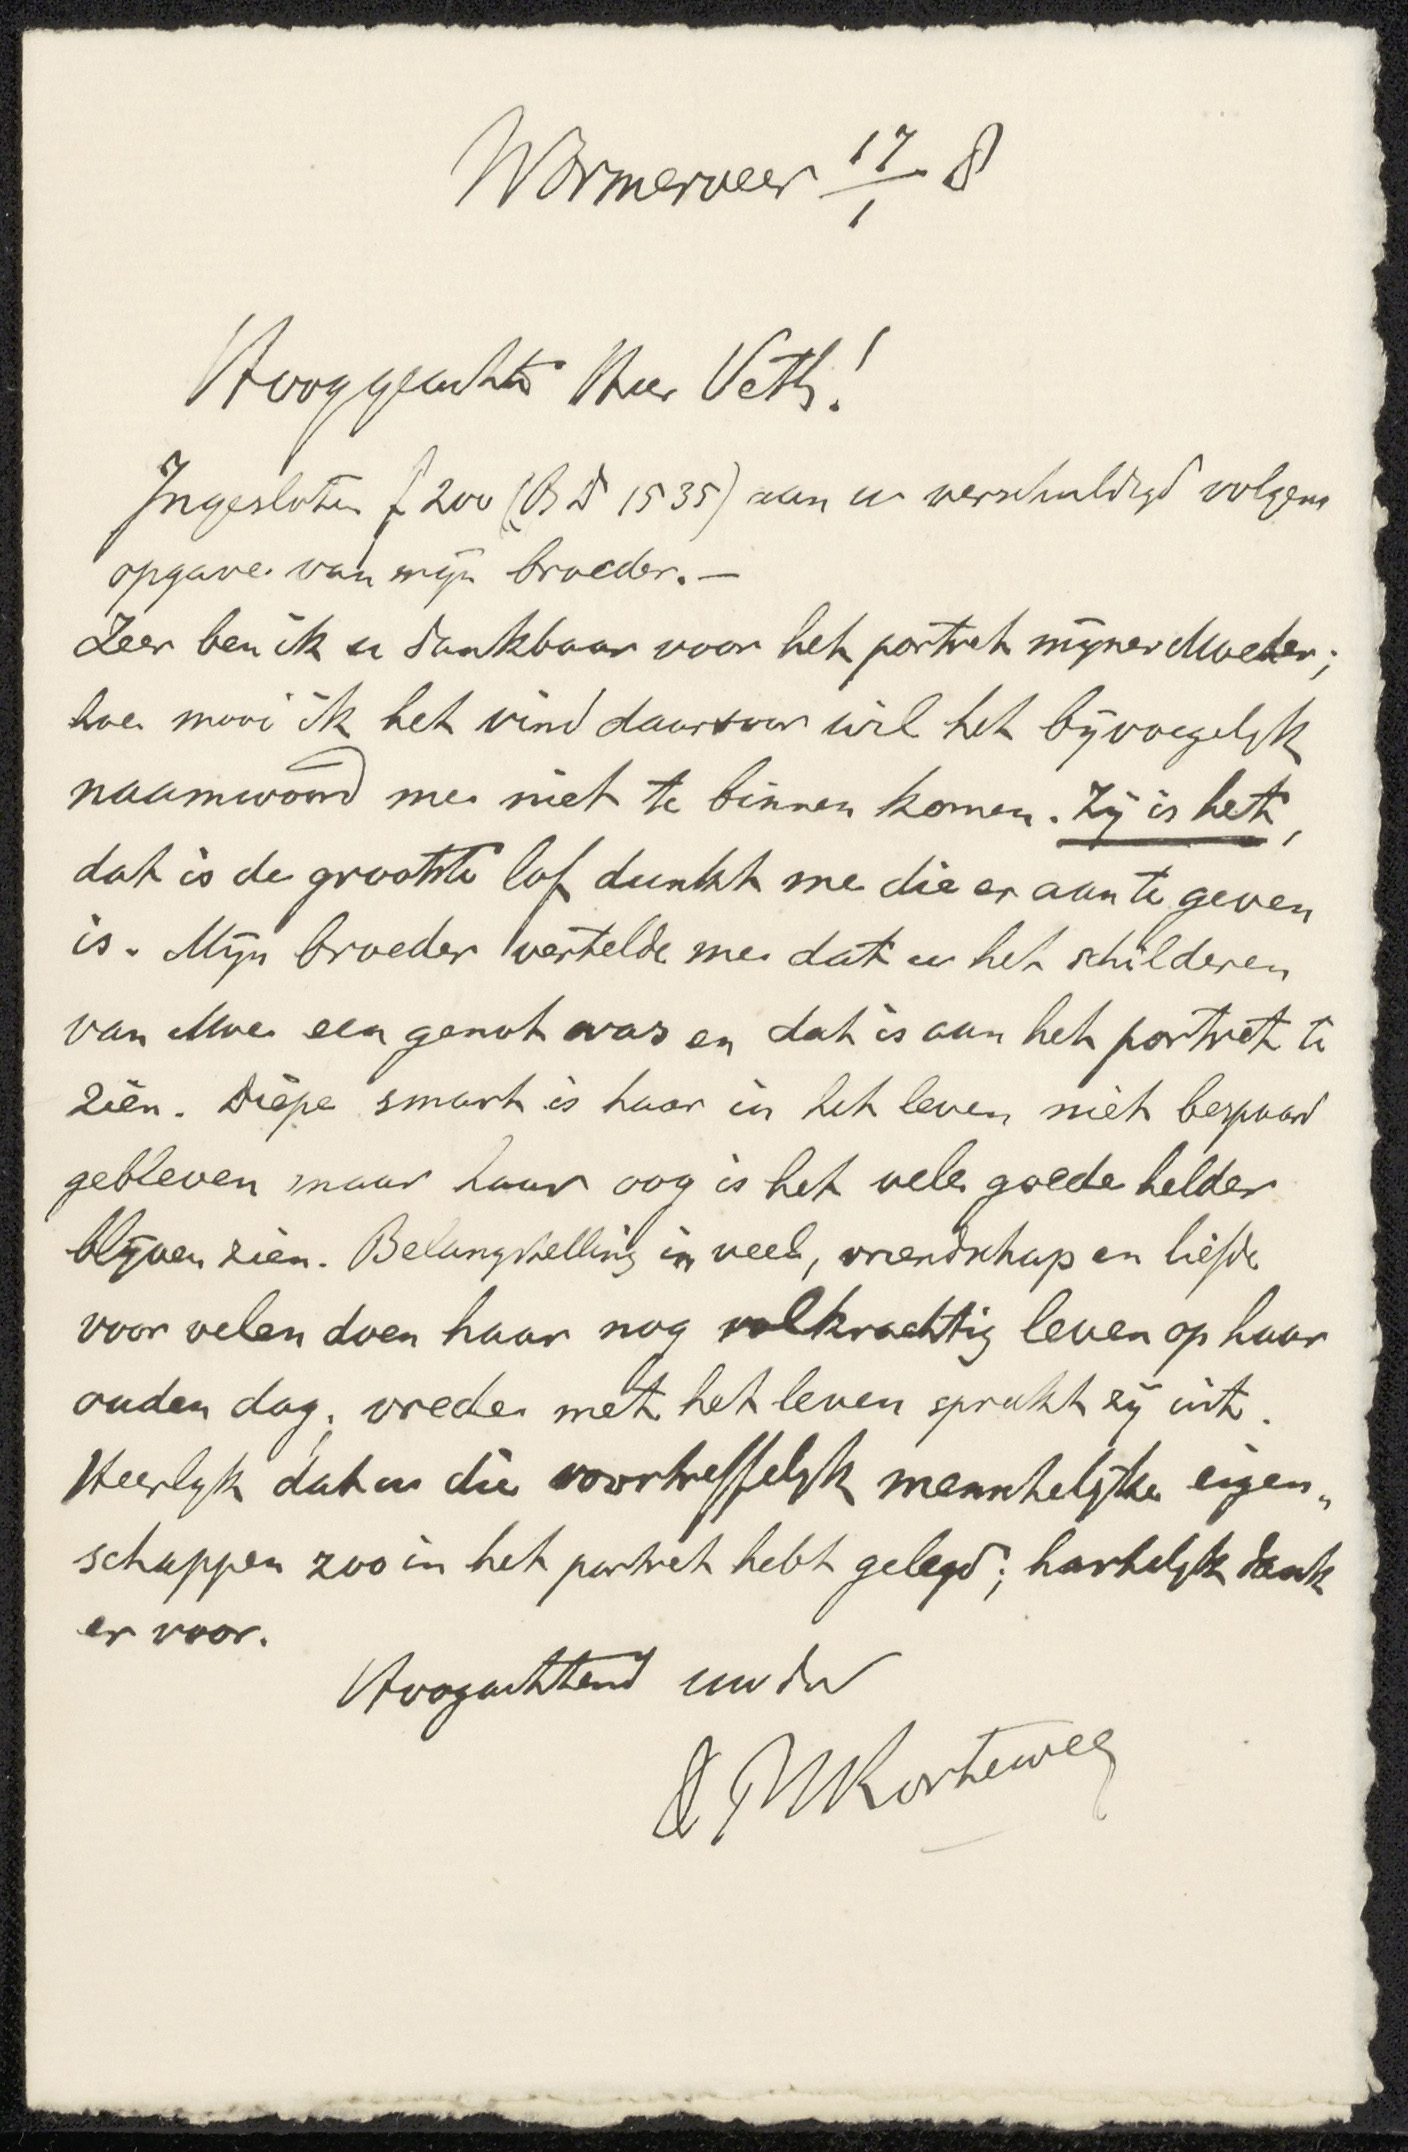 Wormerveer 17/1 8
Hooggeachte Heer Veth!
Ingesloten f 200 (BD 1535) aan u verschuldigd volgens
opgave van mijn broeder. —
Zeer ben ik u dankbaar voor het portret mijner Moeder;
hoe mooi ik het vind daarvoor wil het bijvoegelijk
naamwoord me niet te binnen komen. Zij is het,
dat is de grootste lof dunkt me die er aan te geven
is. Mijn broeder vertelde me dat u het schilderen
van Moe een genot was en dat is aan het portret te
zien. Diepe smart is haar in het leven niet bespaard
gebleven maar haar oog is het vele goede helder
blijven zien. Belangstelling in veel, vriendschap en liefde
voor velen doen haar nog volkrachtig leven op haar
ouden dag; vrede met het leven spreekt zij uit.
Heerlijk dat u die voortreffelijk menschelijke eigen„
schappen zoo in het portret hebt gelegd; hartelijk dank
er voor.
Hoogachtend uw dw
Korteweg